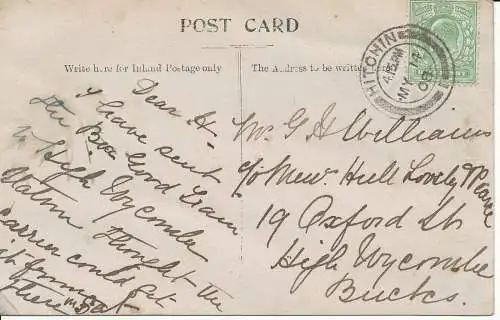 POST CARD
Write here for Inland Postage only
The Address to be written
HITCHIN
4.15 PM
MY 14
08
Dear H
I have sent
the Box Good Train
to High Wycombe
Station Thought the
Carrier could get
it from
there
Mr. G H Williams
c/o Hull Lovely & Pearce
19 Oxford St
High Wycombe
Bucks.